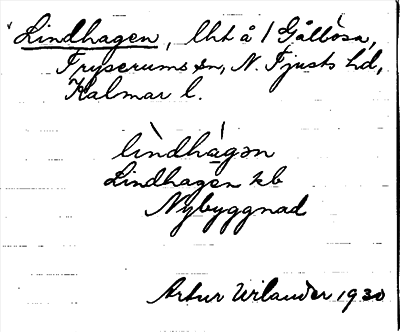 Lindhagen, lht å 1 Gållösa,
Tryserums sn, N. Tjusts hd,
Kalmar l.
lìndhá̱gən
Lindhagen kb
Nybyggnad
Artur Wilander 1930